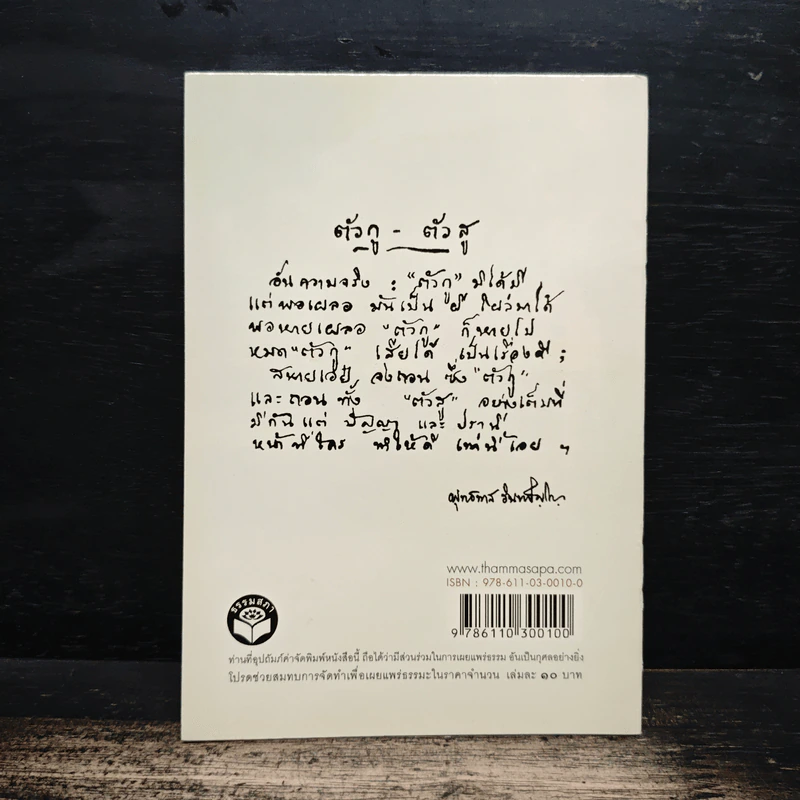 ตัวกู - ตัวสู
อันความจริง : "ตัวกู" มิได้มี
แต่พอเผลอ มันเป็น ผี โผล่มาได้
พอหายเผลอ "ตัวกู" ก็หายไป
หมด "ตัวกู" เสียได้ เป็นเรื่องดี ;
สหายเอ๋ย จงถอน ซึ่ง "ตัวกู"
และถอน ทั้ง "ตัวสู" อย่างเต็มที่
มีกันแต่ ปัญญา และ ปรานี
หน้าที่ใคร ทำให้ดี เท่านี้เอย ฯ
พุทธทาส อินทปัญโญ
www.thammasapa.com
ISBN : 978-611-03-0010-0
9 786110 300100
ธรรมสภา
ท่านที่อุปถัมภ์ค่าจัดพิมพ์หนังสือนี้ ถือได้ว่ามีส่วนร่วมในการเผยแพร่ธรรม อันเป็นกุศลอย่างยิ่ง
โปรดช่วยสมทบการจัดทำเพื่อเผยแพร่ธรรมะในราคาจำนวน เล่มละ ๑๐ บาท